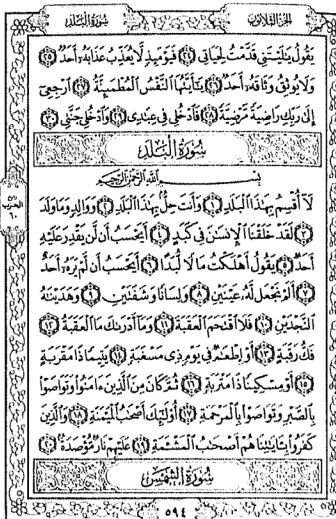 الجُزْءُ الثَّلَاثُونَ سُورَةُ البَلَدِ
يَقُولُ يَٰلَيْتَنِى قَدَّمْتُ لِحَيَاتِى ٢٤ فَيَوْمَئِذٍ لَّا يُعَذِّبُ عَذَابَهُۥٓ أَحَدٌ ٢٥
وَلَا يُوثِقُ وَثَاقَهُۥٓ أَحَدٌ ٢٦ يَٰٓأَيَّتُهَا ٱلنَّفْسُ ٱلْمُطْمَئِنَّةُ ٢٧ ٱرْجِعِىٓ
إِلَىٰ رَبِّكِ رَاضِيَةً مَّرْضِيَّةً ٢٨ فَٱدْخُلِى فِى عِبَٰدِى ٢٩ وَٱدْخُلِى جَنَّتِى ٣٠
سُورَةُ الْبَلَدِ
بِسْمِ ٱللَّهِ ٱلرَّحْمَٰنِ ٱلرَّحِيمِ
لَآ أُقْسِمُ بِهَٰذَا ٱلْبَلَدِ ١ وَأَنتَ حِلٌّۢ بِهَٰذَا ٱلْبَلَدِ ٢ وَوَالِدٍ وَمَا وَلَدَ
٣ لَقَدْ خَلَقْنَا ٱلْإِنسَٰنَ فِى كَبَدٍ ٤ أَيَحْسَبُ أَن لَّن يَقْدِرَ عَلَيْهِ
أَحَدٌ ٥ يَقُولُ أَهْلَكْتُ مَالًا لُّبَدًا ٦ أَيَحْسَبُ أَن لَّمْ يَرَهُۥٓ أَحَدٌ
٧ أَلَمْ نَجْعَل لَّهُۥ عَيْنَيْنِ ٨ وَلِسَانًا وَشَفَتَيْنِ ٩ وَهَدَيْنَٰهُ
ٱلنَّجْدَيْنِ ١٠ فَلَا ٱقْتَحَمَ ٱلْعَقَبَةَ ١١ وَمَآ أَدْرَىٰكَ مَا ٱلْعَقَبَةُ ١٢
فَكُّ رَقَبَةٍ ١٣ أَوْ إِطْعَٰمٌ فِى يَوْمٍ ذِى مَسْغَبَةٍ ١٤ يَتِيمًا ذَا مَقْرَبَةٍ
١٥ أَوْ مِسْكِينًا ذَا مَتْرَبَةٍ ١٦ ثُمَّ كَانَ مِنَ ٱلَّذِينَ ءَامَنُوا۟ وَتَوَاصَوْا۟
بِٱلصَّبْرِ وَتَوَاصَوْا۟ بِٱلْمَرْحَمَةِ ١٧ أُو۟لَٰٓئِكَ أَصْحَٰبُ ٱلْمَيْمَنَةِ ١٨ وَٱلَّذِينَ
كَفَرُوا۟ بِـَٔايَٰتِنَا هُمْ أَصْحَٰبُ ٱلْمَشْـَٔمَةِ ١٩ عَلَيْهِمْ نَارٌ مُّؤْصَدَةٌۢ ٢٠
سُورَةُ الشَّمْسِ
٥٩٤
الحزب
٦٠